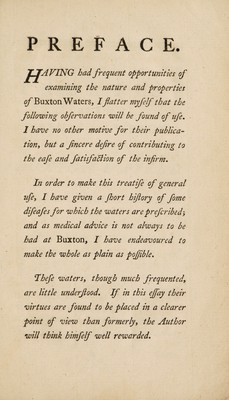 PREFACE.
HAVING had frequent opportunities of
examining the nature and properties
of Buxton Waters, I flatter myſelf that the
following obſervations will be found of uſe.
I have no other motive for their publica-
tion, but a ſincere deſire of contributing to
the eaſe and ſatisfaction of the infirm.
In order to make this treatiſe of general
uſe, I have given a ſhort hiſtory of ſome
diſeaſes for which the waters are preſcribed;
and as medical advice is not always to be
had at Buxton, I have endeavoured to
make the whole as plain as poſſible.
Theſe waters, though much frequented,
are little underſtood. If in this eſſay their
virtues are found to be placed in a clearer
point of view than formerly, the Author
will think himſelf well rewarded.